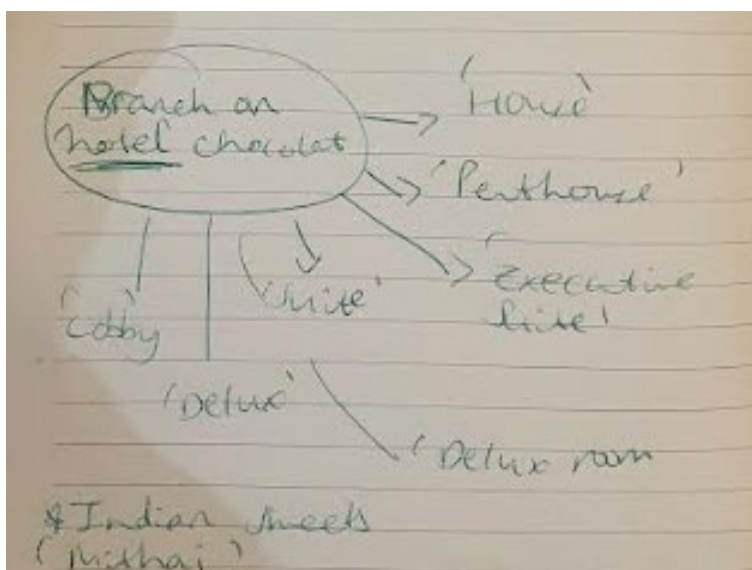 Branch on
hotel chocolat
'House'
'Penthouse'
'Executive
Suite'
'Suite'
'Lobby'
'Delux'
'Delux room
& Indian sweets
(Mithai)